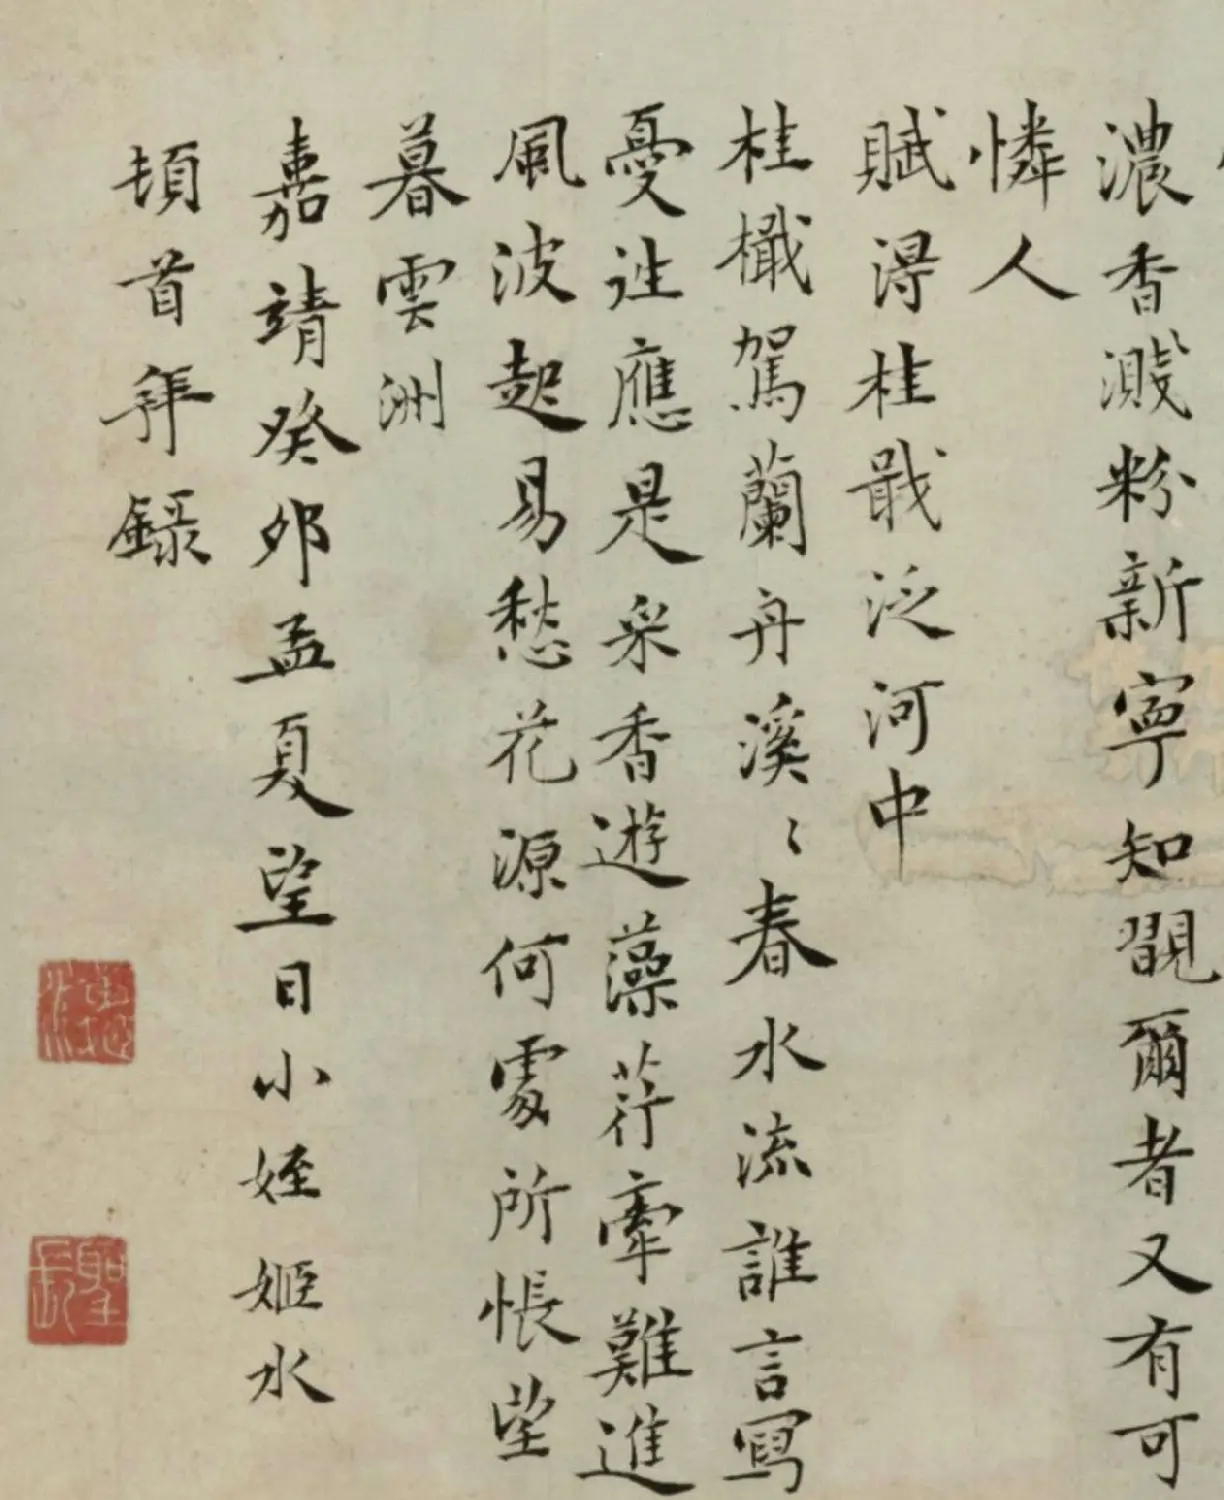 濃香濺粉新寧知爾者又有可
憐人
賦得桂戢泛河中
桂檝駕蘭舟溪〻春水流誰言寫
憂往應是采香遊藻荇牽難進
風波起易愁花源何處所悵望
暮雲洲
嘉靖癸卯孟夏望日小姪姬水
頓首拜錄
志淳
聖長